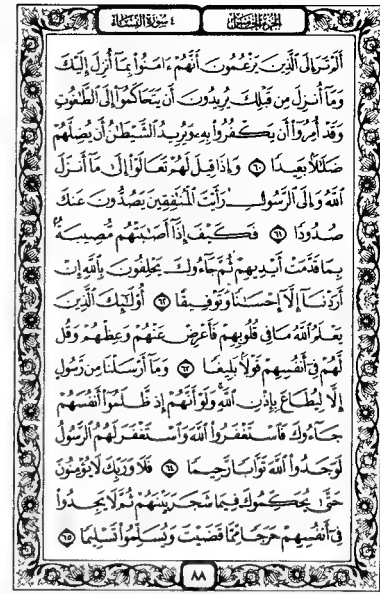 الجزء الخامس ٤ سورة النساء
أَلَمْ تَرَ إِلَى الَّذِينَ يَزْعُمُونَ أَنَّهُمْ ءَامَنُوا۟ بِمَآ أُنزِلَ إِلَيْكَ
وَمَآ أُنزِلَ مِن قَبْلِكَ يُرِيدُونَ أَن يَتَحَاكَمُوٓا۟ إِلَى الطَّـٰغُوتِ
وَقَدْ أُمِرُوٓا۟ أَن يَكْفُرُوا۟ بِهِۦ وَيُرِيدُ الشَّيْطَـٰنُ أَن يُضِلَّهُمْ
ضَلَـٰلًۢا بَعِيدًا ٦٠ وَإِذَا قِيلَ لَهُمْ تَعَالَوْا۟ إِلَىٰ مَآ أَنزَلَ
اللَّهُ وَإِلَى الرَّسُولِ رَأَيْتَ الْمُنَـٰفِقِينَ يَصُدُّونَ عَنكَ
صُدُودًا ٦١ فَكَيْفَ إِذَآ أَصَـٰبَتْهُم مُّصِيبَةٌۢ
بِمَا قَدَّمَتْ أَيْدِيهِمْ ثُمَّ جَآءُوكَ يَحْلِفُونَ بِاللَّهِ إِنْ
أَرَدْنَآ إِلَّآ إِحْسَـٰنًا وَتَوْفِيقًا ٦٢ أُو۟لَـٰٓئِكَ الَّذِينَ
يَعْلَمُ اللَّهُ مَا فِى قُلُوبِهِمْ فَأَعْرِضْ عَنْهُمْ وَعِظْهُمْ وَقُل
لَّهُمْ فِىٓ أَنفُسِهِمْ قَوْلًۢا بَلِيغًا ٦٣ وَمَآ أَرْسَلْنَا مِن رَّسُولٍ
إِلَّا لِيُطَاعَ بِإِذْنِ اللَّهِ وَلَوْ أَنَّهُمْ إِذ ظَّلَمُوٓا۟ أَنفُسَهُمْ
جَآءُوكَ فَاسْتَغْفَرُوا۟ اللَّهَ وَاسْتَغْفَرَ لَهُمُ الرَّسُولُ
لَوَجَدُوا۟ اللَّهَ تَوَّابًا رَّحِيمًا ٦٤ فَلَا وَرَبِّكَ لَا يُؤْمِنُونَ
حَتَّىٰ يُحَكِّمُوكَ فِيمَا شَجَرَ بَيْنَهُمْ ثُمَّ لَا يَجِدُوا۟
فِىٓ أَنفُسِهِمْ حَرَجًا مِّمَّا قَضَيْتَ وَيُسَلِّمُوا۟ تَسْلِيمًا ٦٥
٨٨